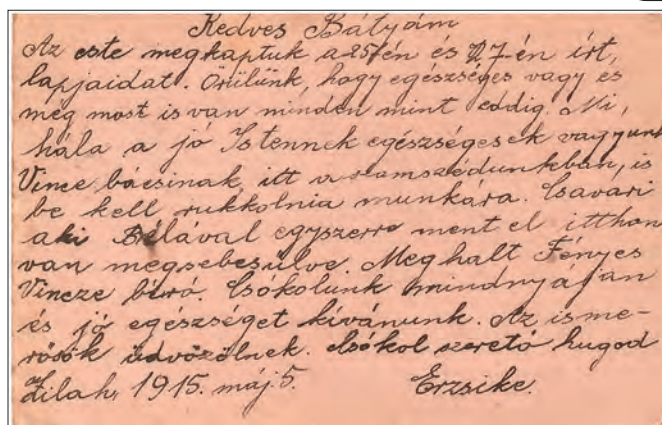 Kedves Bátyám
Az este megkaptuk a 25-én és 27-én írt,
lapjaidat. Örülünk, hogy egészséges vagy és
meg most is van minden mint eddig. Mi,
hála a jó Istennek egészségesek vagyunk
Vince bácsinak, itt a szomszédunkban, is
be kell rukkolnia munkára. Csavari
aki Bélával egyszerre ment el itthon
van megsebesülve. Meghalt Fényes
Vincze biró. Csókolunk mindnyájan
és jó egészséget kívánunk. Az isme-
rősök üdvözölnek. Csókol szerető hugod
Zilah, 1915. máj. 5. Erzsike.